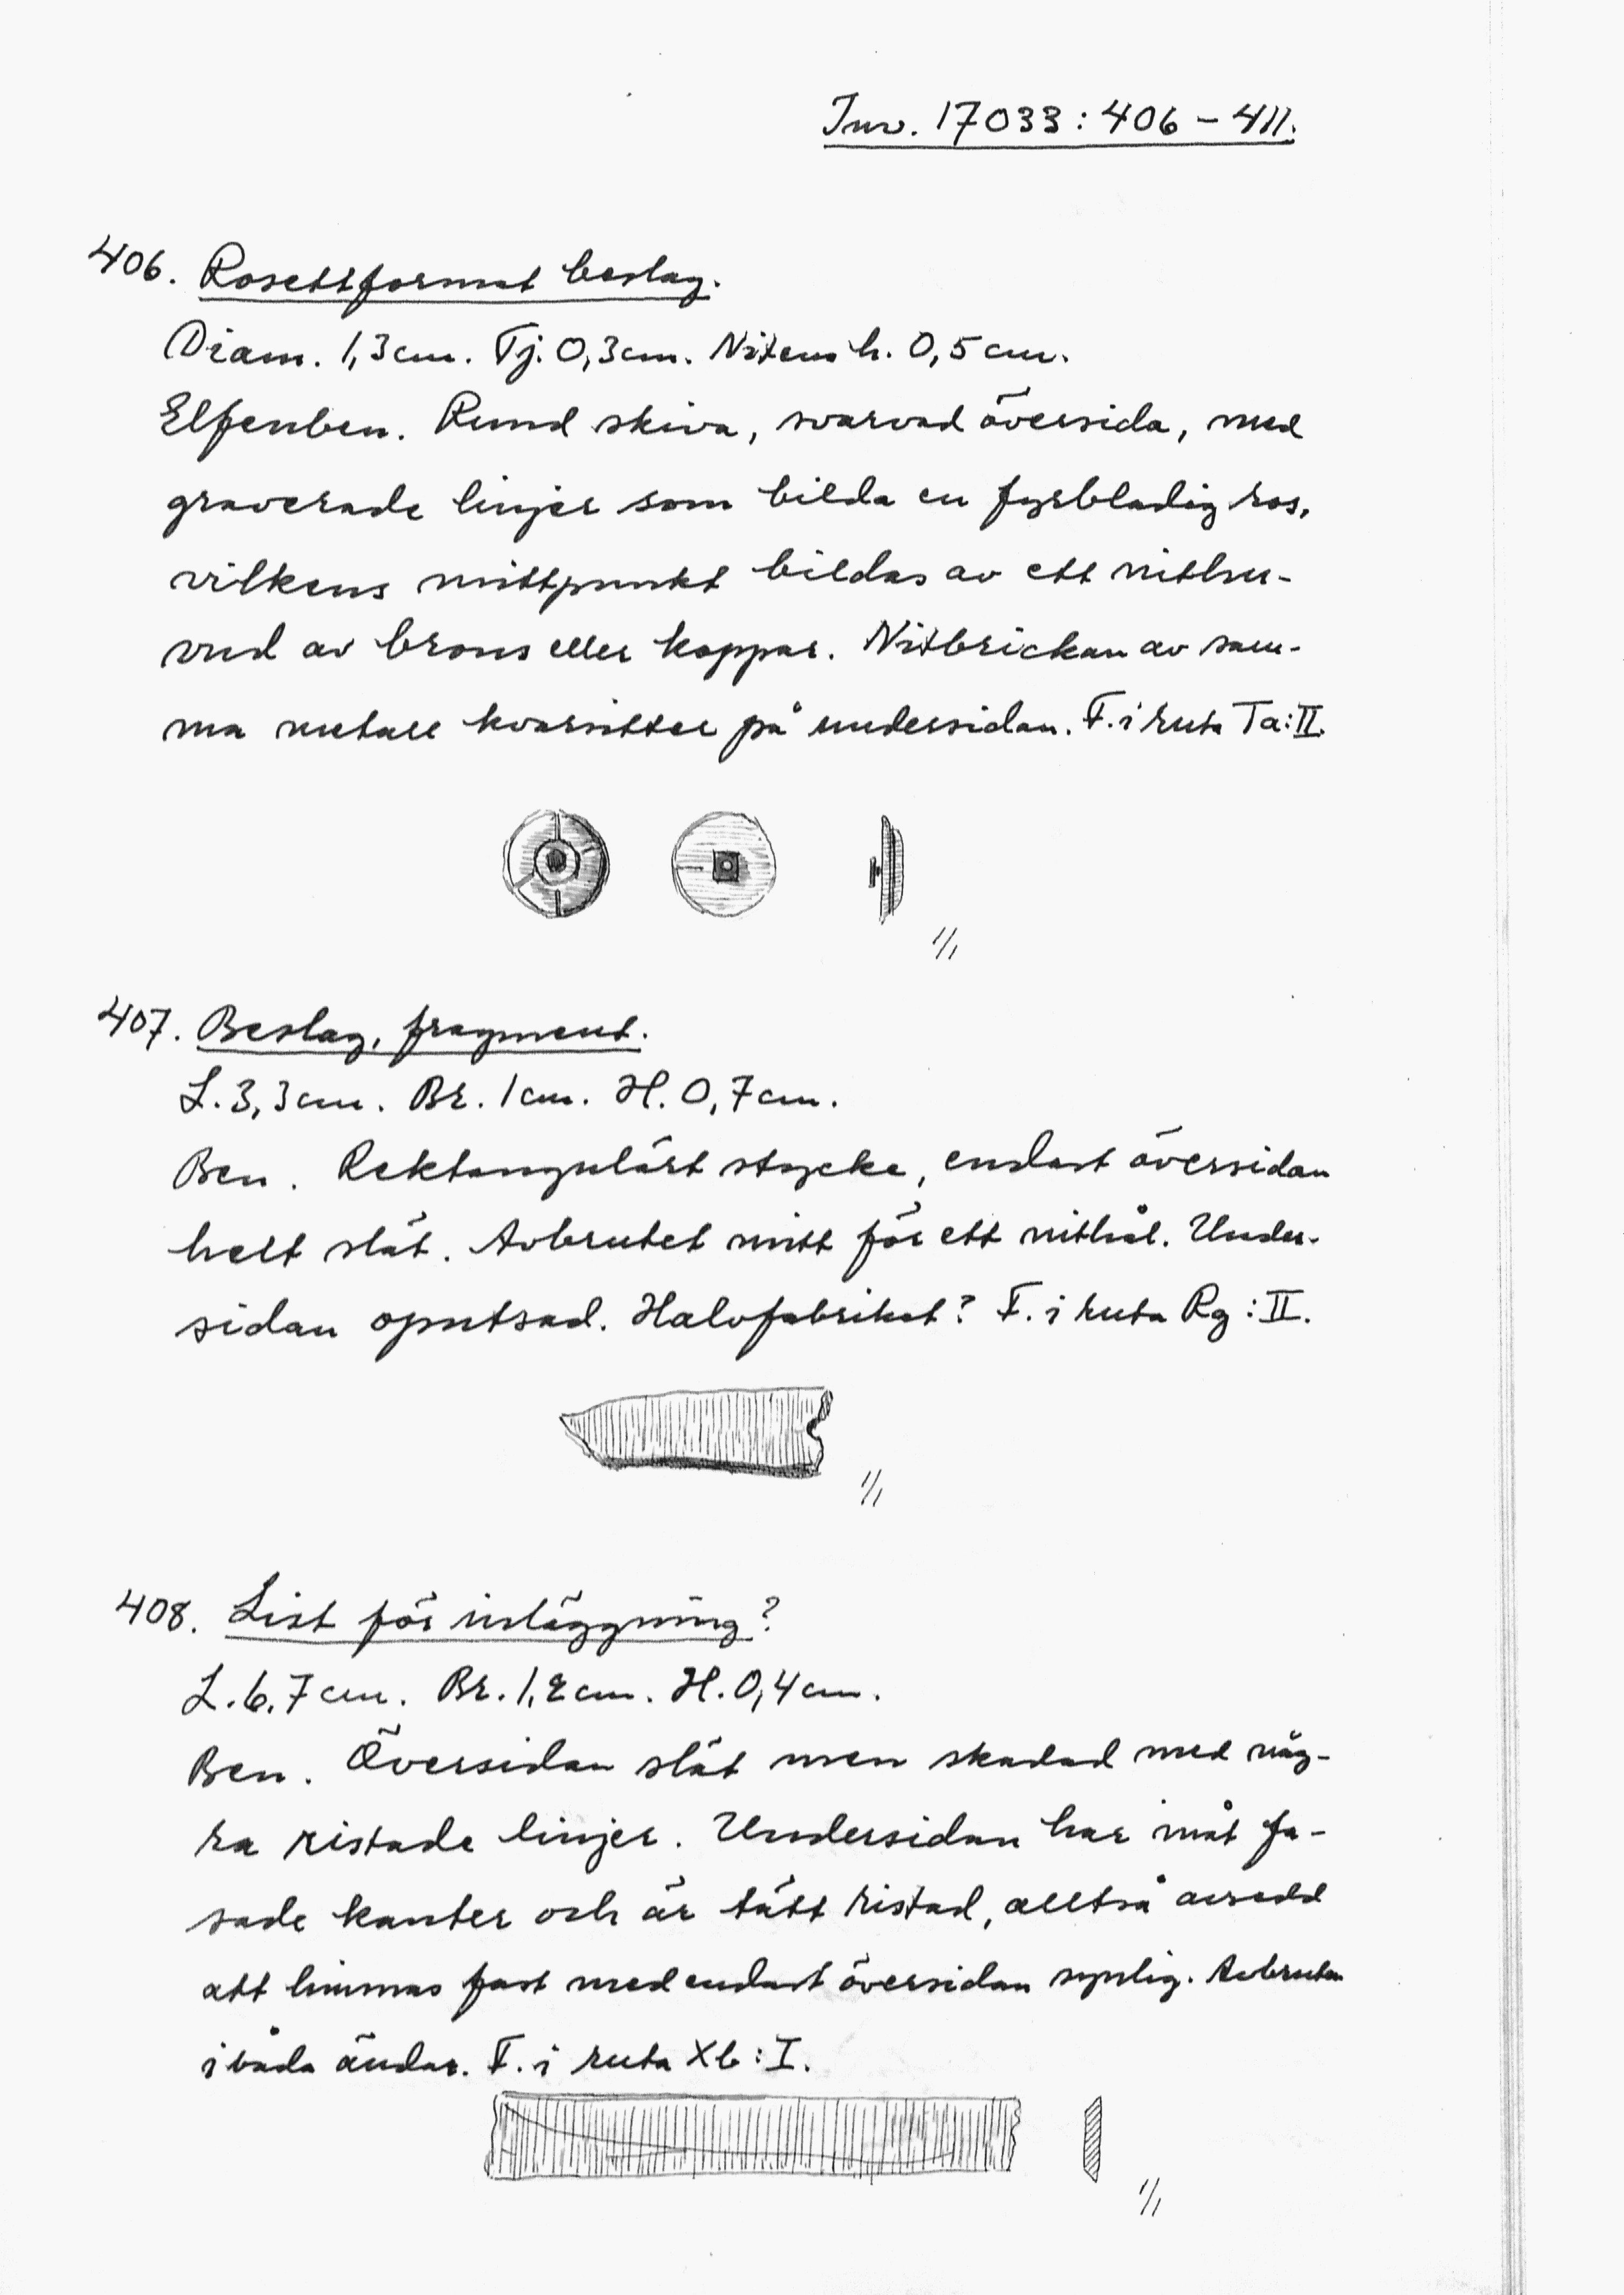 Inv. 17033:406-411.
406. Rosettformat beslag.
Diam. 1,3cm. Tj. 0,3cm. Nitens h. 0,5cm.
Elfenben. Rund skiva, svarvad översida, med
graverade linjer som bilda en fyrbladig ros,
vilkens mittpunkt bildas av ett nithu-
vud av brons eller koppar. Nitbrickan av sam-
ma metall kvarsitter på undersidan. F. i ruta Ta:II.
1/1
407. Beslag, fragment.
L. 3,3cm. Br. 1cm. H. 0,7cm.
Ben. Rektangulärt stycke, endast översidan
helt slät. Avbrutet mitt för ett nithål. Under-
sidan oputsad. Halvfabrikat? F. i ruta Rg:II.
1/1
408. List för inläggning?
L. 6,7cm. Br. 1,2cm. H. 0,4cm.
Ben. Översidan slät men skadad med någ-
ra ristade linjer. Undersidan har inåt fa-
sade kanter och är tätt ristad, alltså avsedd
att limmas fast med endast översidan synlig. Avbruten
i båda ändar. F. i ruta Xb:I.
1/1